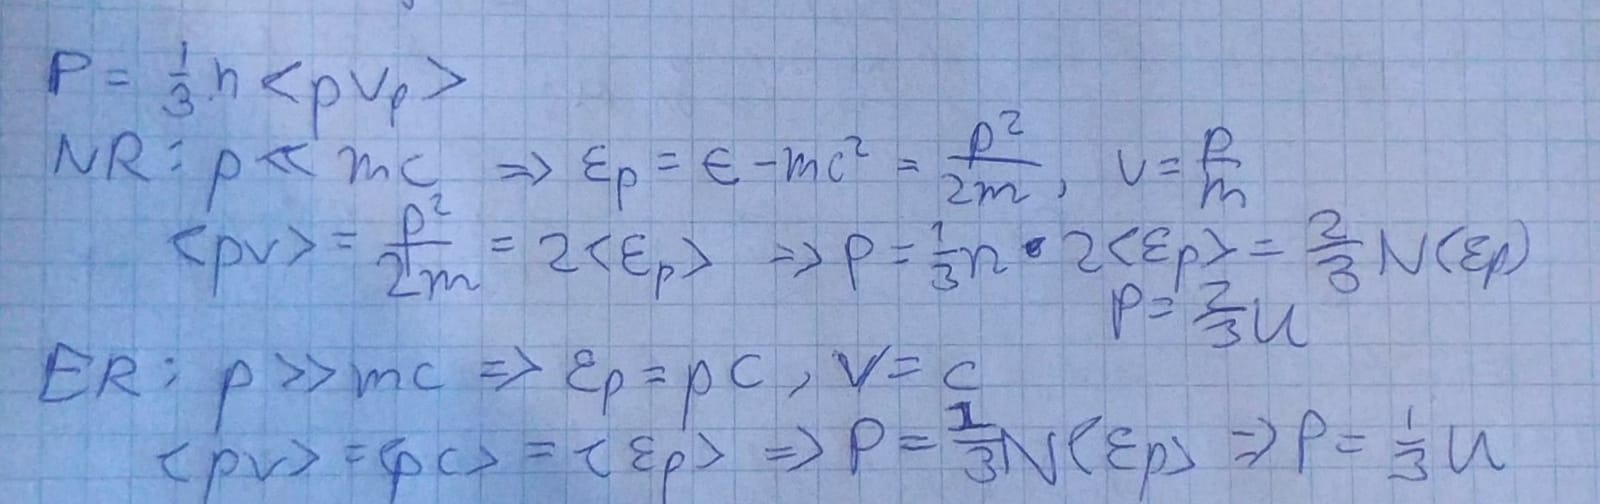 P = 1/3 n <pv_p>
NR: p << mc => ε_p = ϵ - mc² = p²/2m, v = p/m
<pv> = p²/2m = 2<ε_p> => P = 1/3 n • 2<ε_p> = 2/3 N<ε_p)
P = 2/3 U
ER: p >> mc => ε_p = pc, v = c
<pv> = <pc> = <ε_p> => P = 1/3 N<ε_p> => P = 1/3 U